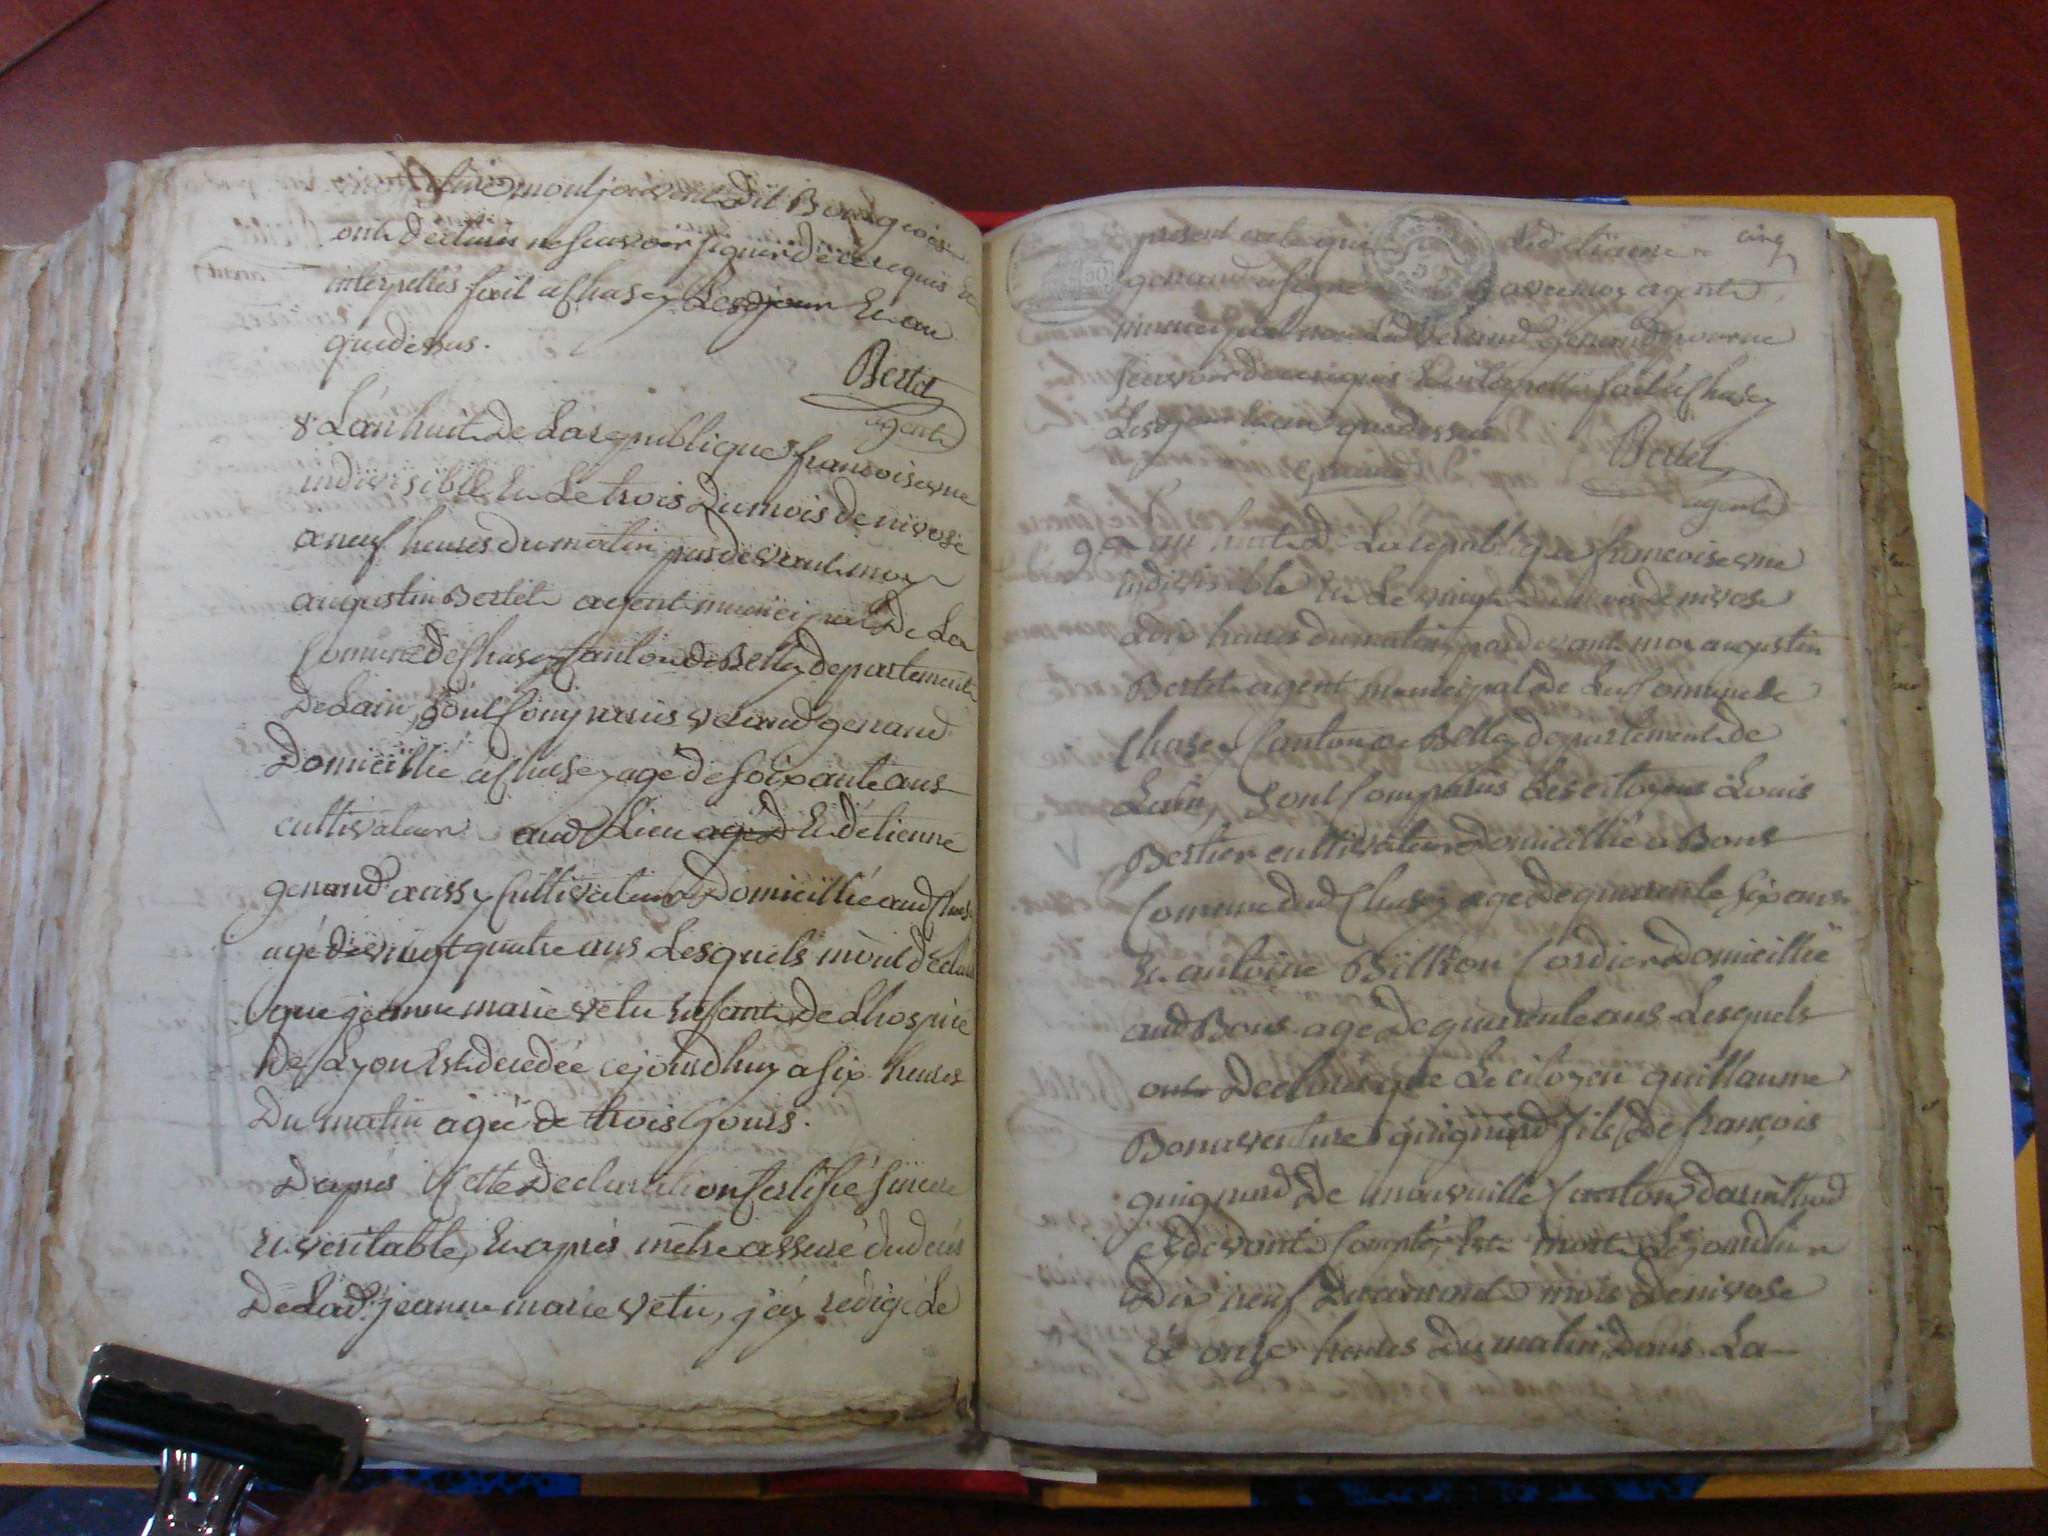 montjouvent dit Bourgeois
ont declarés ne scavoir signer de ce requis &
interpellés fait a Chasey Lesd jour & an
que dessus.
Bertet
agent
8 L'an huit de La republique francoise vne
indivisible & Le trois du mois de nivose
a neuf heures du matin pardevant moy
augustin Bertet agent municipal de La
Comune de Chasey Canton de Belley departement
De Lain, sont Comparus genand
Domicillié a Chasey agé de soixante ans
cultivateur aud Lieu agé d & détienne
genand aussy Cultivateur Domicillié aud Chas.
agé de vingt quatre ans Lesquels m'ont déclaré
que jeanne marie vetu Enfant de Lhospice
de Lyon Est decedée cejourdhuy a six heures
Du matin agée de trois jours.
Dapres Cette Declaration Certifié sincere
& veritable, & apres m'etre assuré du decés
De Lad. jeanne marie vetu, j'ay rédigé Le
present acte que Led etienne cinq
genand a signé avec moy agent
municipal non Led genand pour ne
scavoir de ce requis & interpellé fait a Chasey
Lesd jour & an que dessus
genand
Bertet
agent
9 L'an huit de La republique francoise vne
indivisible & Le vingt du mois de nivose
a dix heures du matin pardevant moy augustin
Bertet agent municipal de La Comune de
Chasey Canton de Belley departement de
Lain, sont Comparus Les citoyens Louis
Bertier cultivateur Domicillié a Bons
Commune dud Chasey agé de quarente six ans
& antoine Billion Cordier Domicillié
aud Bons agé de quarente ans Lesquels
ont Declaré que Le citoyen guillaume
Bonaventure guignard fils de françois
guignard De Canton darinthod
Comté, Est mort Lejourdhier
Dix neuf Du courant mois de nivose
a onze heures Du matin, Dans La